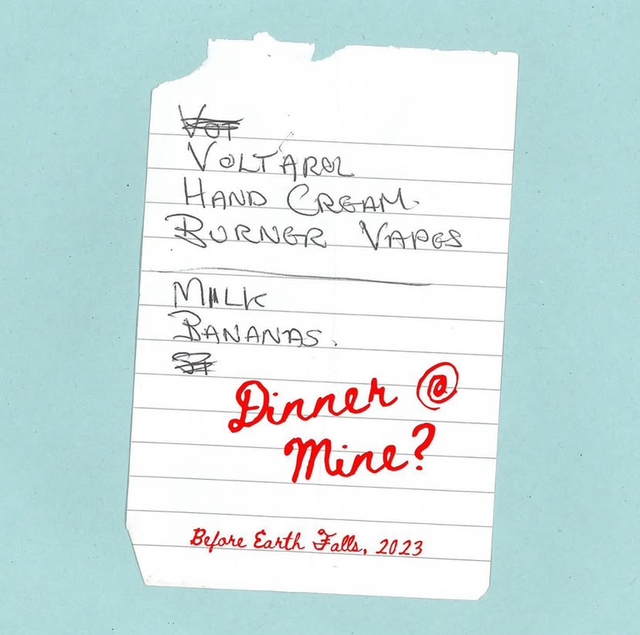 Vot
VOLTAROL
HAND CREAM.
BURNER VAPES
MILK
BANANAS.
Dinner @
Mine?
Before Earth Falls, 2023